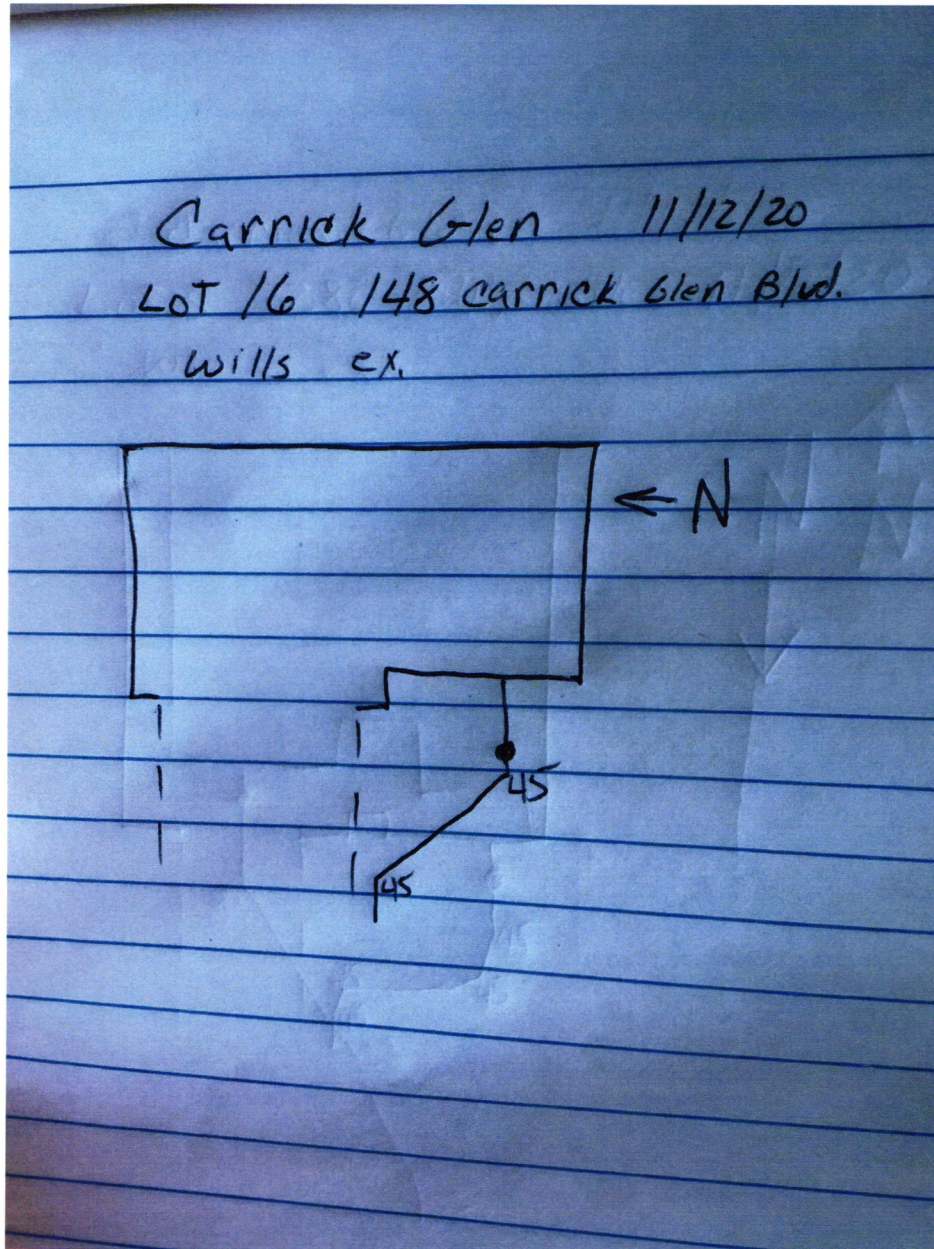 Carrick Glen 11/12/20
LOT 16 148 carrick Glen Blvd.
wills ex.
← N
45
45